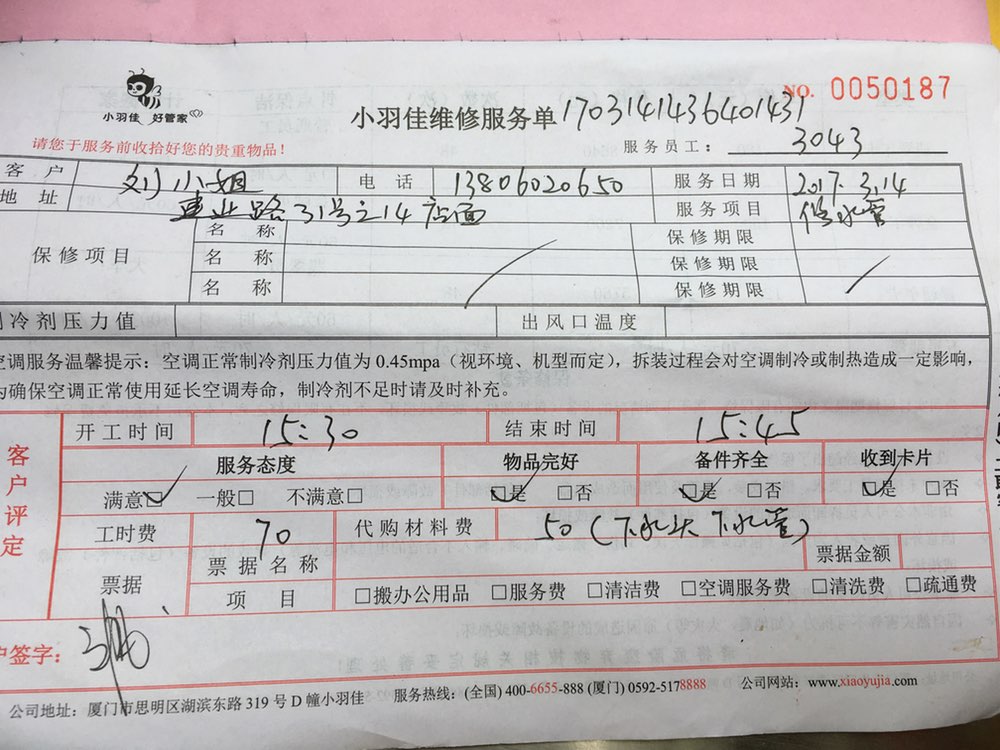 小羽佳 好管家
NO. 0050187
小羽佳维修服务单 1703141436401431
请您于服务前收拾好您的贵重物品！
服务员工： 3043
客 户 刘小姐 电 话 13806020650 服务日期 2017.3.14
地 址 建业路31号之14店面 服务项目 修水管
保修项目 名 称 保修期限
名 称 保修期限
名 称 保修期限
冷剂压力值 出风口温度
空调服务温馨提示：空调正常制冷剂压力值为0.45mpa（视环境、机型而定），拆装过程会对空调制冷或制热造成一定影响，
为确保空调正常使用延长空调寿命，制冷剂不足时请及时补充。
客户评定
开工时间 15:30 结束时间 15:45
服务态度 物品完好 备件齐全 收到卡片
满意☑ 一般□ 不满意□ ☑是 □否 ☑是 □否 ☑是 □否
工时费 70 代购材料费 50（下水头下水管）
票据 票据名称 票据金额
项 目 □搬办公用品 □服务费 □清洁费 □空调服务费 □清洗费 □疏通费
户签字：
公司地址：厦门市思明区湖滨东路319号D幢小羽佳 服务热线：(全国) 400-6655-888 (厦门) 0592-5178888 公司网站：www.xiaoyujia.com